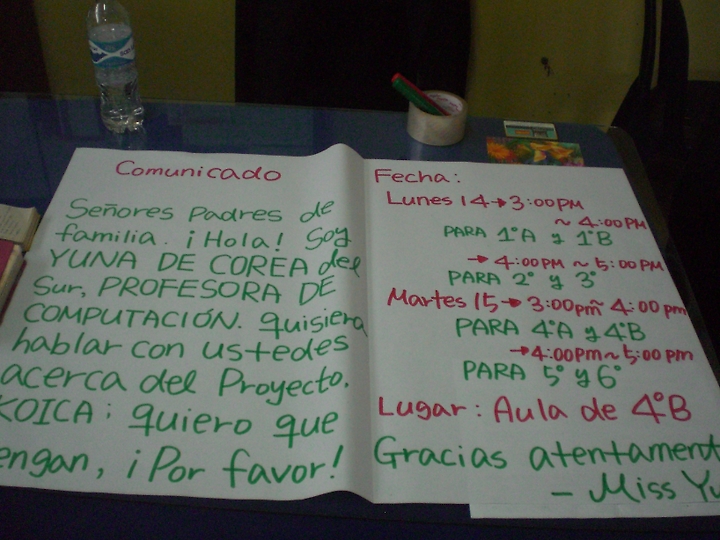 Comunicado
Señores Padres de
familia. ¡Hola! Soy
YUNA DE COREA del
Sur, PROFESORA DE
COMPUTACIÓN. quisiera
hablar con ustedes
acerca del Proyecto.
KOICA; quiero que
engan, ¡Por favor!
Fecha:
Lunes 14→3:00PM
~ 4:00PM
PARA 1°A y 1°B
→ 4:00PM ~ 5:00PM
PARA 2° y 3°
Martes 15→ 3:00pm~ 4:00pm
PARA 4°A y 4°B
→4:00PM~5:00PM
PARA 5° y 6°
Lugar: Aula de 4°B
Gracias atentament
- Miss Yu